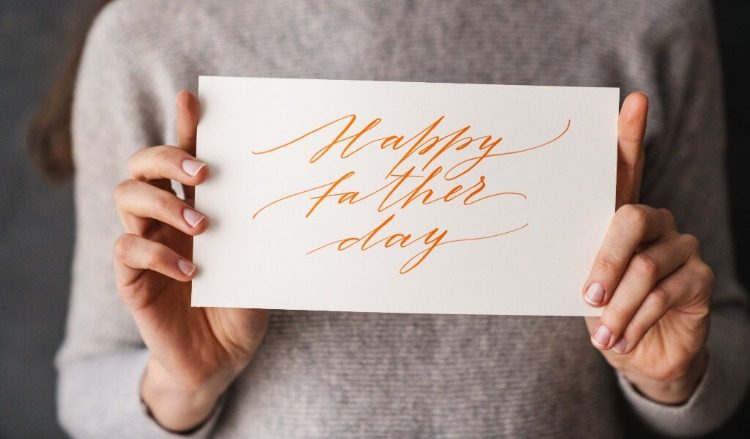 Happy
father
day